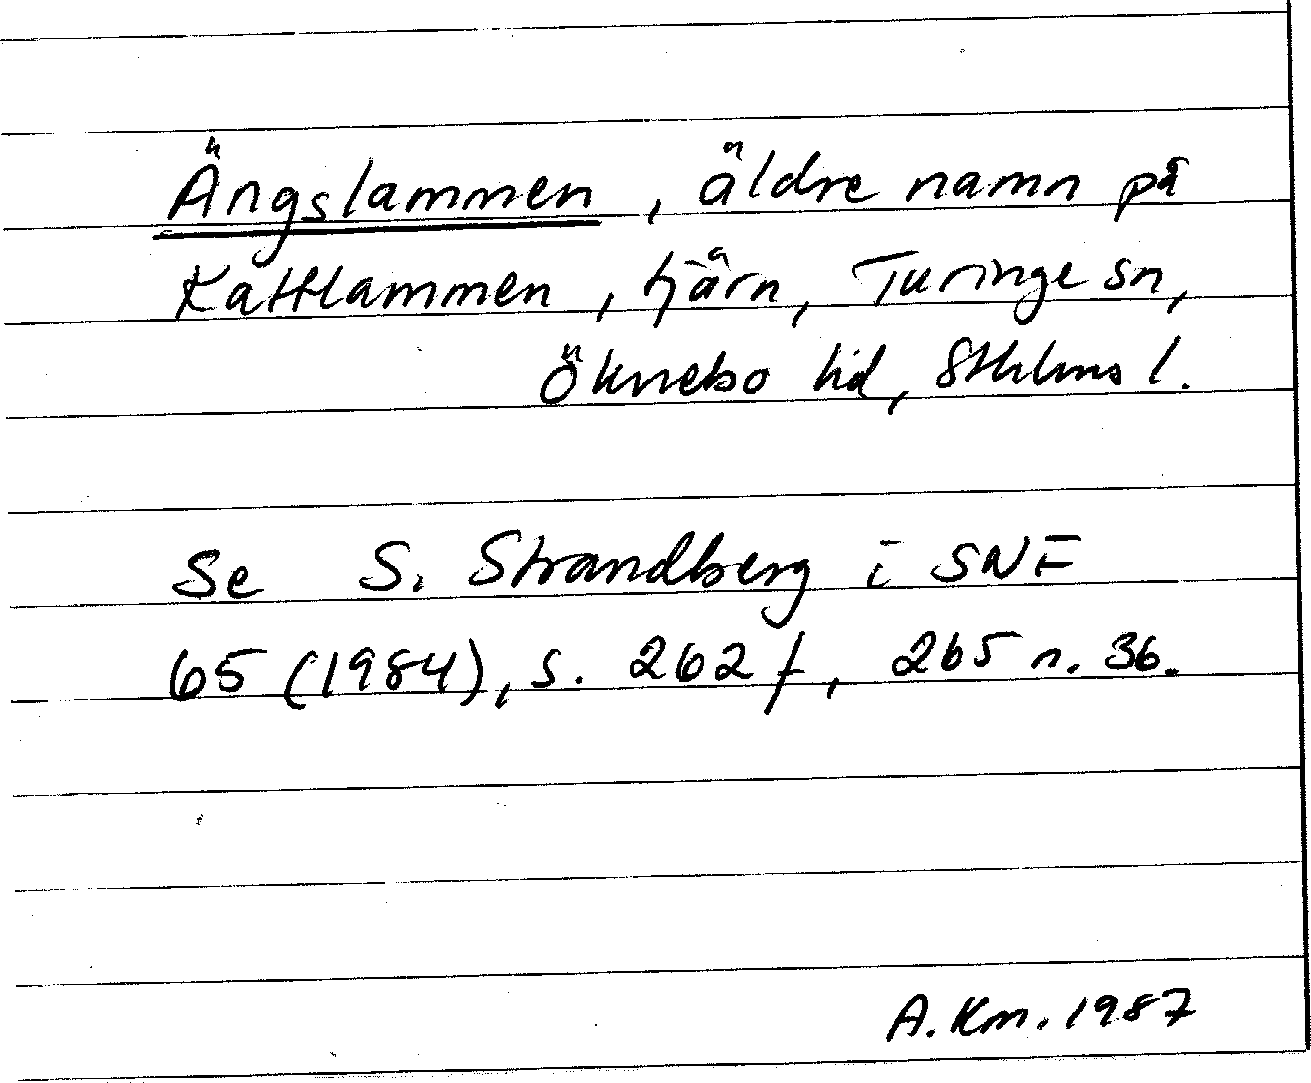 Ängslammen, äldre namn på
Kattlammen, tjärn, Turinge sn,
Öknebo hd, Sthlms l.
Se S. Strandberg i SNF
65 (1984), s. 262 f, 265 n. 36.
A. Km. 1987